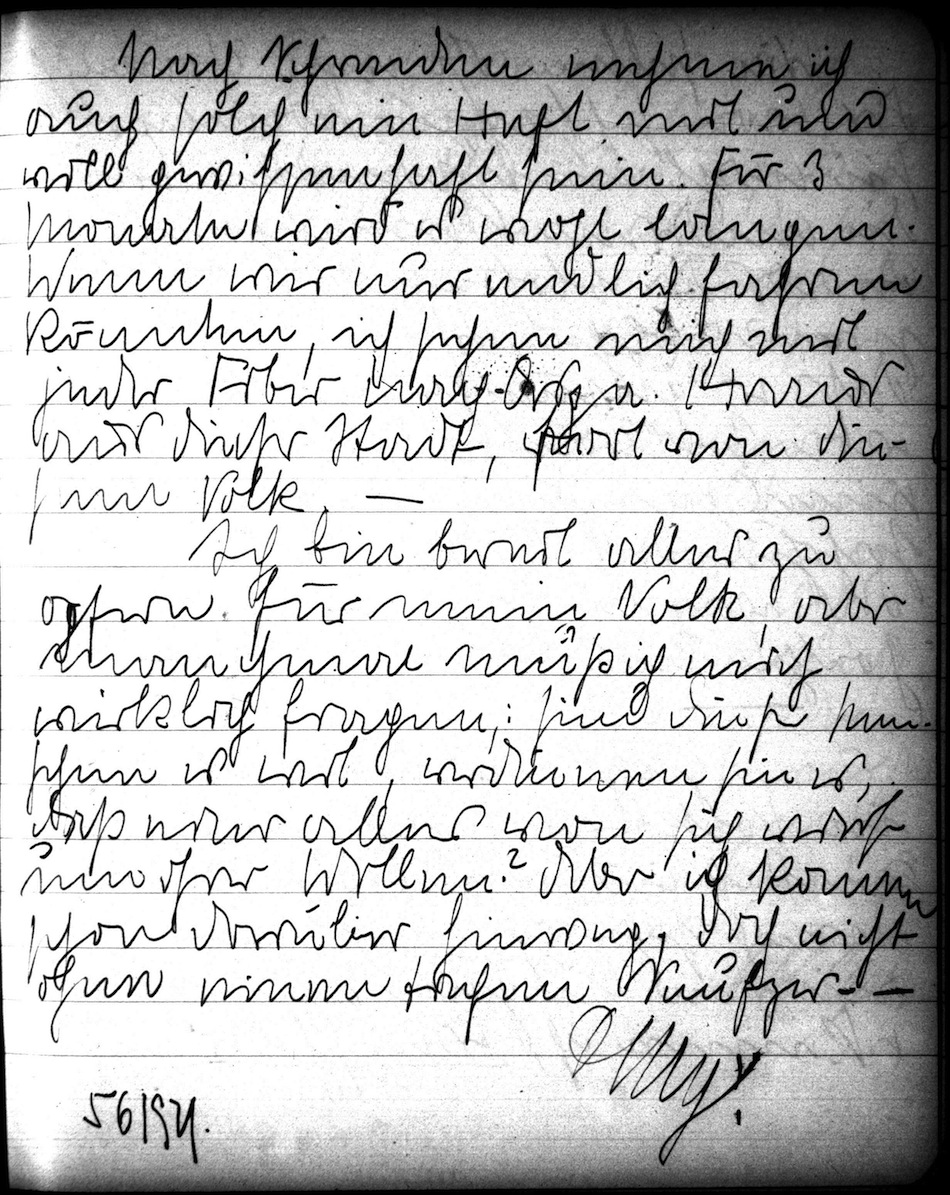 Nach Schweden nehme ich
auch solch ein Heft mit und
will gewissenhaft sein. Für 3
Monate wird es wohl langen.
Wenn wir nur endlich fahren
könnten, ich sehne mich mit
jeder Fiber nach Olga. Heraus
aus dieser Stadt, fort von die-
sem Volk. —
Ich bin bereit alles zu
opfern für mein Volk, aber
manchmal muß ich mich
wirklich fragen: sind diese Men-
schen es wert, verdienen sie es,
daß man alles von sich wirft
um ihrer Willen? Aber ich komme
schon darüber hinweg, doch nicht
ohne einen tiefen Seufzer. —
56194.